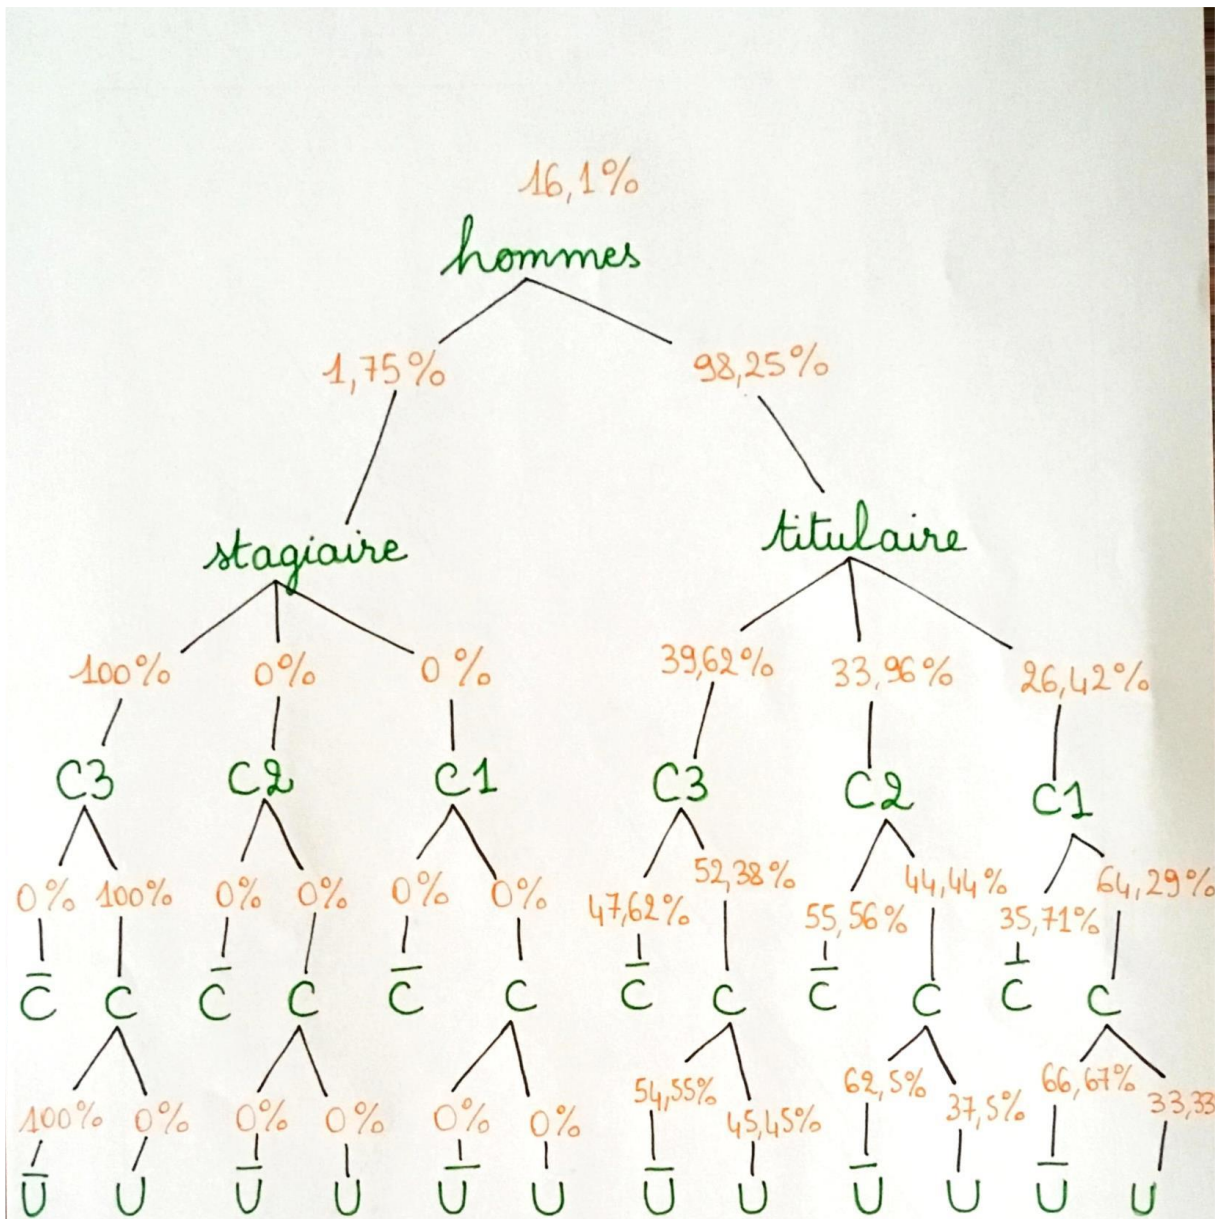 16,1%
hommes
1,75% 98,25%
stagiaire titulaire
100% 0% 0% 39,62% 33,96% 26,42%
C3 C2 C1 C3 C2 C1
0% 100% 0% 0% 0% 0% 47,62% 52,38% 55,56% 44,44% 35,71% 64,29%
C̅ C C̅ C C̅ C C̅ C C̅ C C̅ C
100% 0% 0% 0% 0% 0% 54,55% 45,45% 62,5% 37,5% 66,67% 33,33
U̅ U U̅ U U̅ U U̅ U U̅ U U̅ U